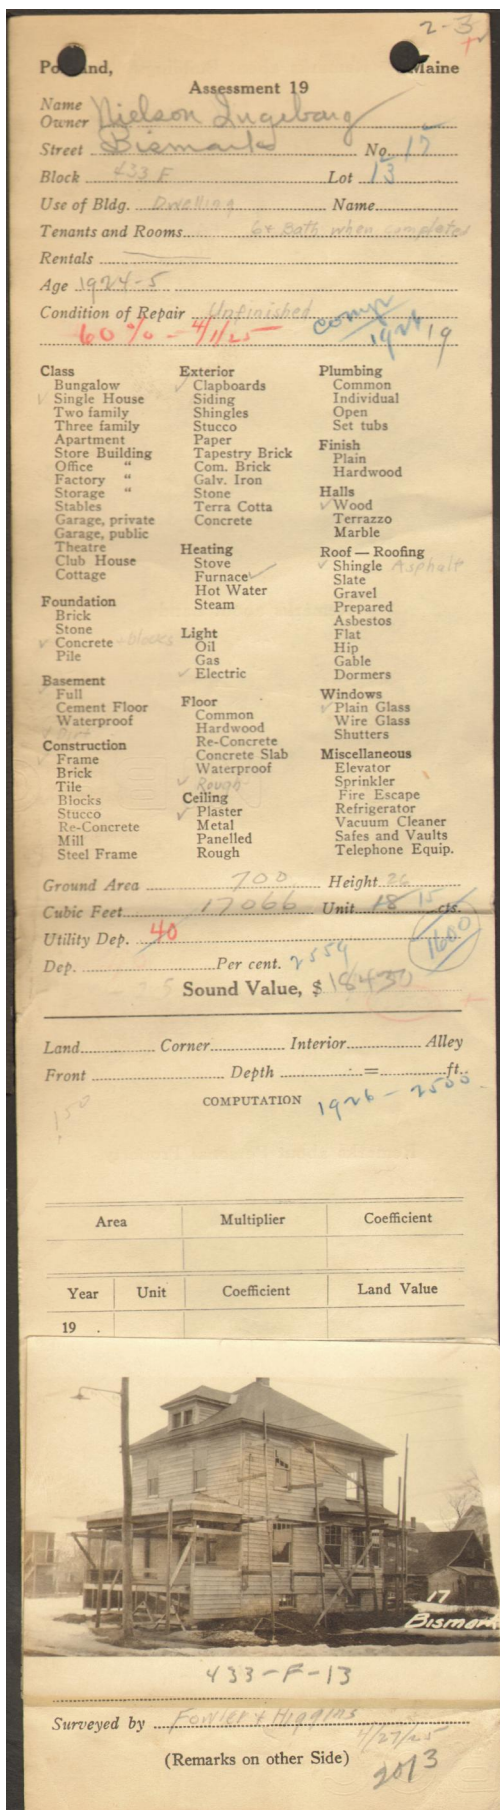 2-3
Portland, Maine
Assessment 19
Name
Owner Nielson Ingeborg
Street Bismark No. 17
Block 433 F Lot 13
Use of Bldg. Dwelling Name
Tenants and Rooms 6 & Bath when completed
Rentals
Age 1924-5
Condition of Repair Unfinished
60% - 4/1/25 compl 1926 19
Class
Bungalow
✓ Single House
Two family
Three family
Apartment
Store Building
Office "
Factory "
Storage "
Stables
Garage, private
Garage, public
Theatre
Club House
Cottage
Foundation
Brick
Stone
✓ Concrete + blocks
Pile
Basement
✓ Full
Cement Floor
Waterproof
✓ Dirt
Construction
✓ Frame
Brick
Tile
Blocks
Stucco
Re-Concrete
Mill
Steel Frame
Exterior
✓ Clapboards
Siding
Shingles
Stucco
Paper
Tapestry Brick
Com. Brick
Galv. Iron
Stone
Terra Cotta
Concrete
Heating
Stove
Furnace ✓
Hot Water
Steam
Light
Oil
Gas
✓ Electric
Floor
Common
Hardwood
Re-Concrete
Concrete Slab
Waterproof
✓ Rough
Ceiling
✓ Plaster
Metal
Panelled
Rough
Plumbing
Common
Individual
Open
Set tubs
Finish
Plain
Hardwood
Halls
✓ Wood
Terrazzo
Marble
Roof — Roofing
✓ Shingle Asphalt
Slate
Gravel
Prepared
Asbestos
Flat
Hip
Gable
Dormers
Windows
✓ Plain Glass
Wire Glass
Shutters
Miscellaneous
Elevator
Sprinkler
Fire Escape
Refrigerator
Vacuum Cleaner
Safes and Vaults
Telephone Equip.
Ground Area 700 Height 26
Cubic Feet 17066 Unit 18 15 cts.
Utility Dep. 40 1600
Dep. Per cent. 2559
Sound Value, $ 18430
Land Corner Interior Alley
Front Depth = ft.
COMPUTATION 1926 - 2500
150
Area Multiplier Coefficient
Year Unit Coefficient Land Value
19 .
17
Bismark
433-F-13
Surveyed by Fowler & Higgins
4/27/25
(Remarks on other Side)
2013